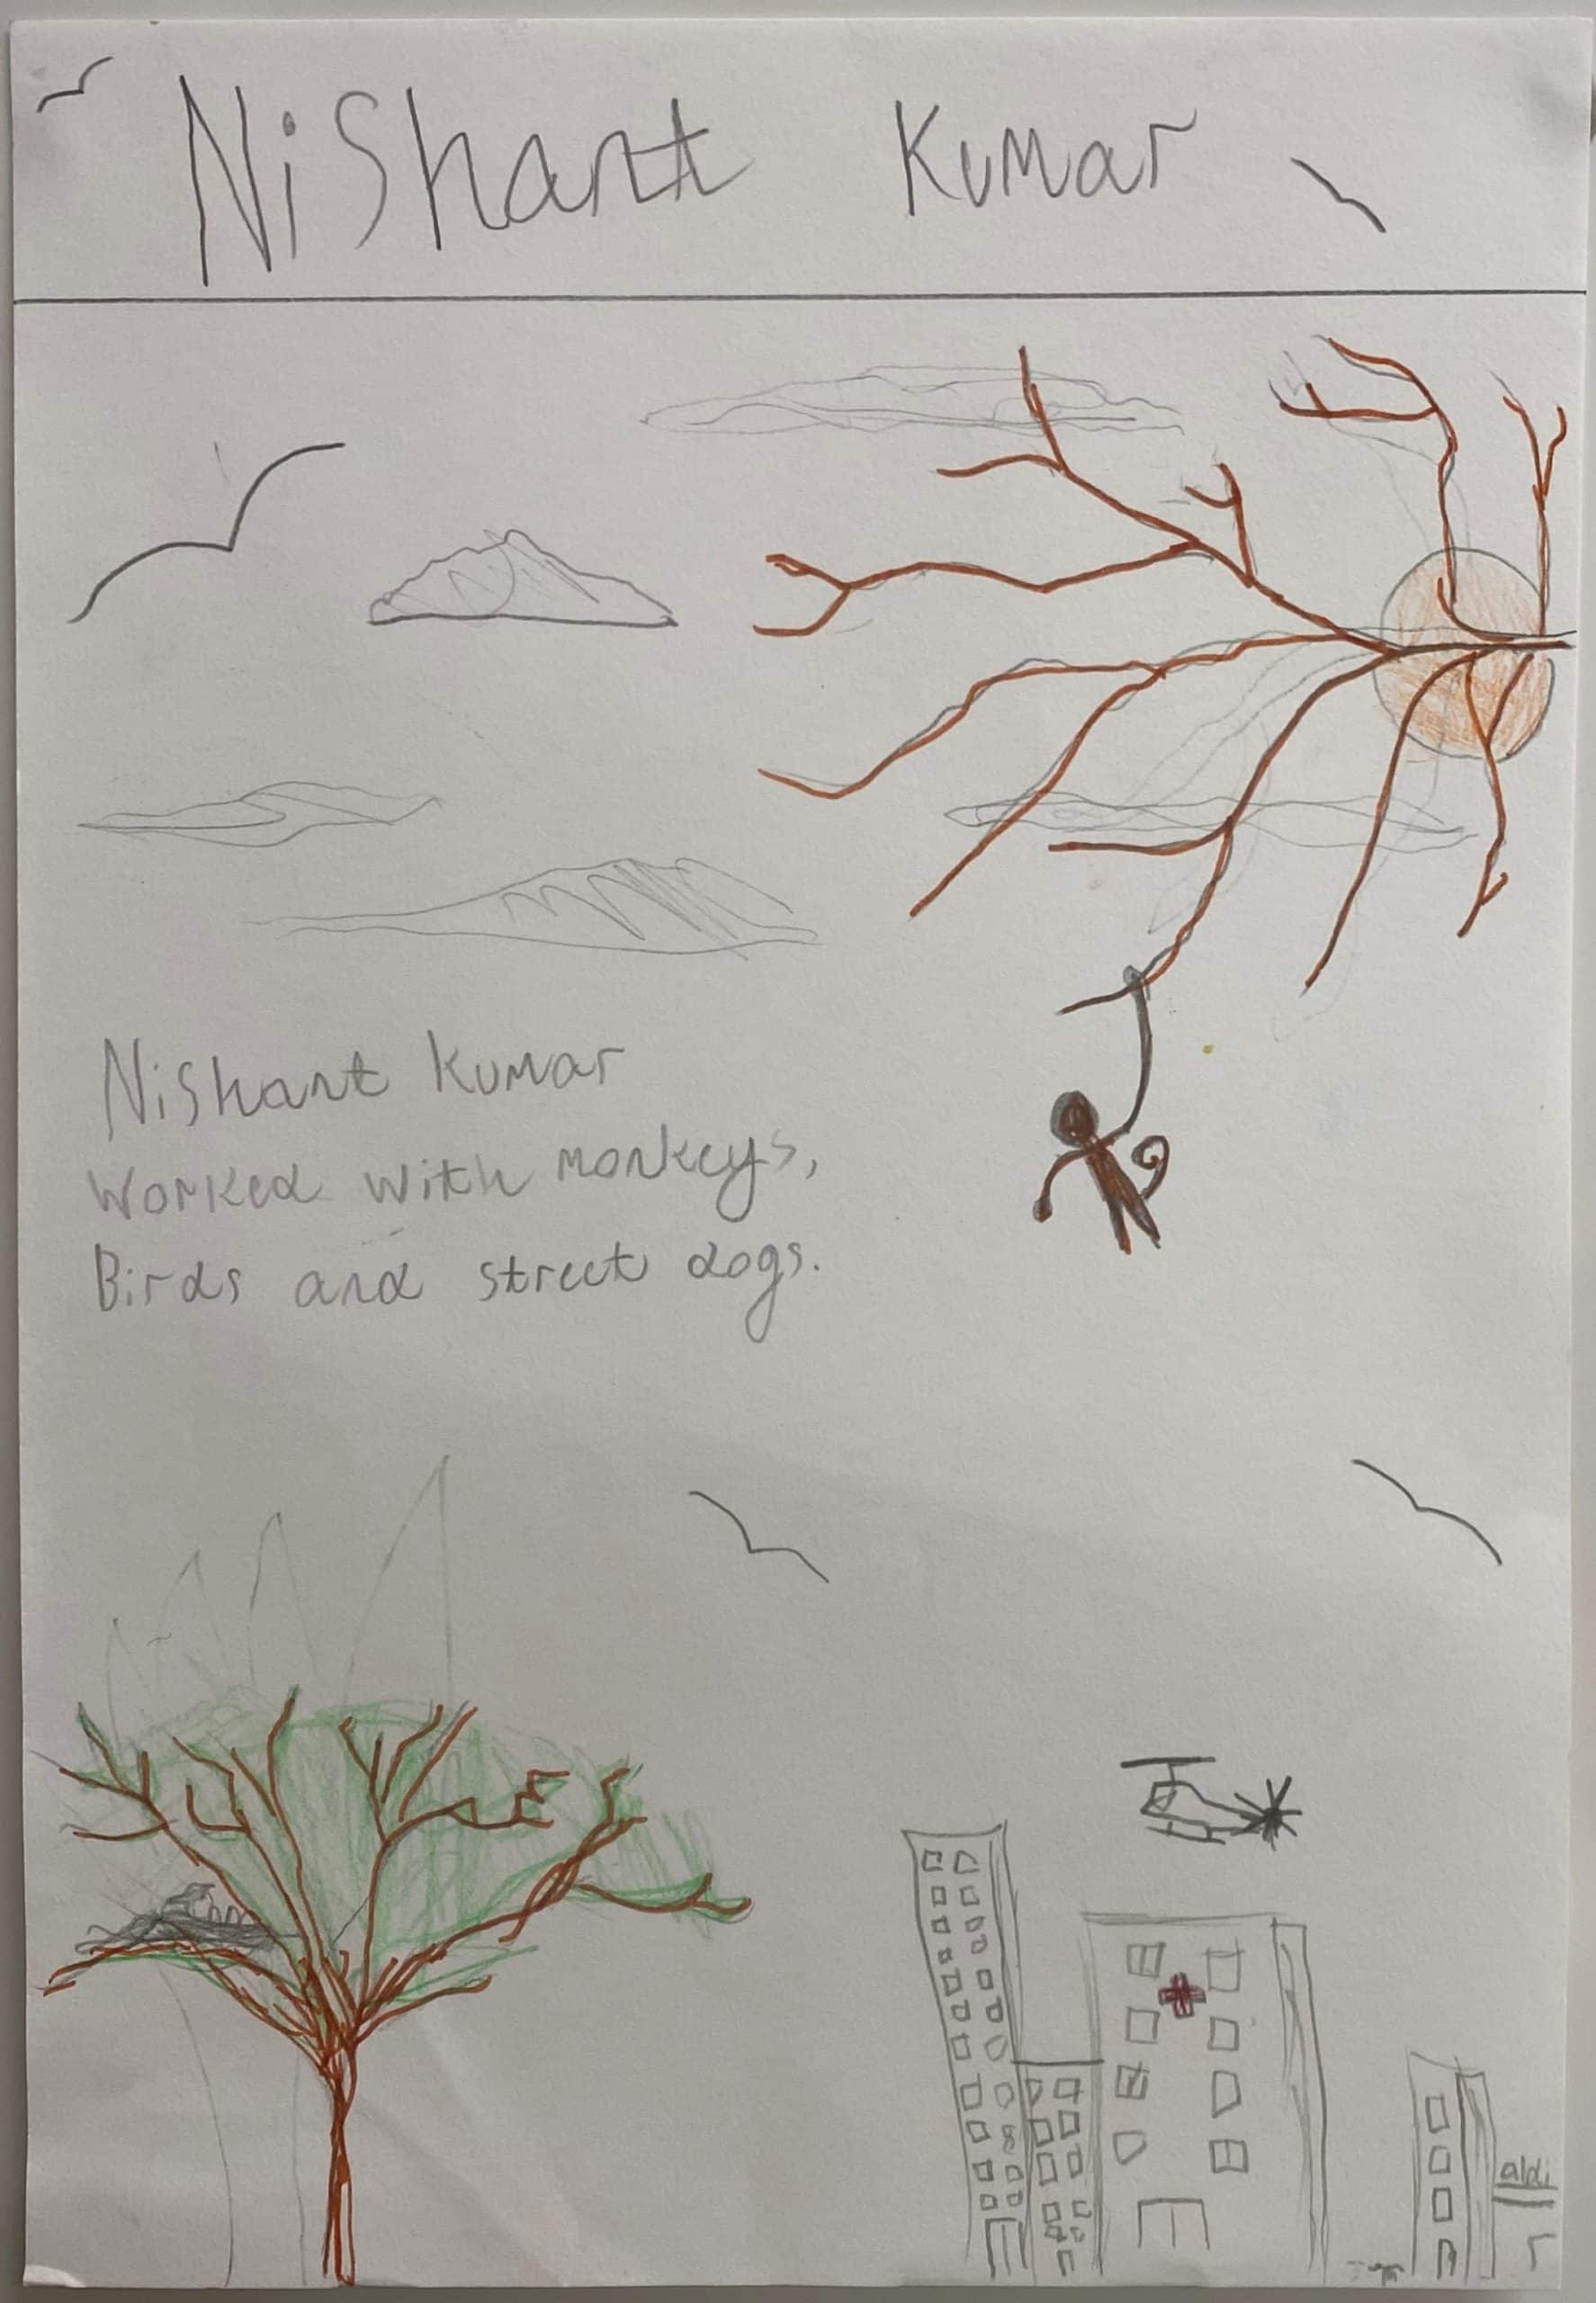 Nishant Kumar
Nishant Kumar
Worked with monkeys,
Birds and street dogs.
aldi